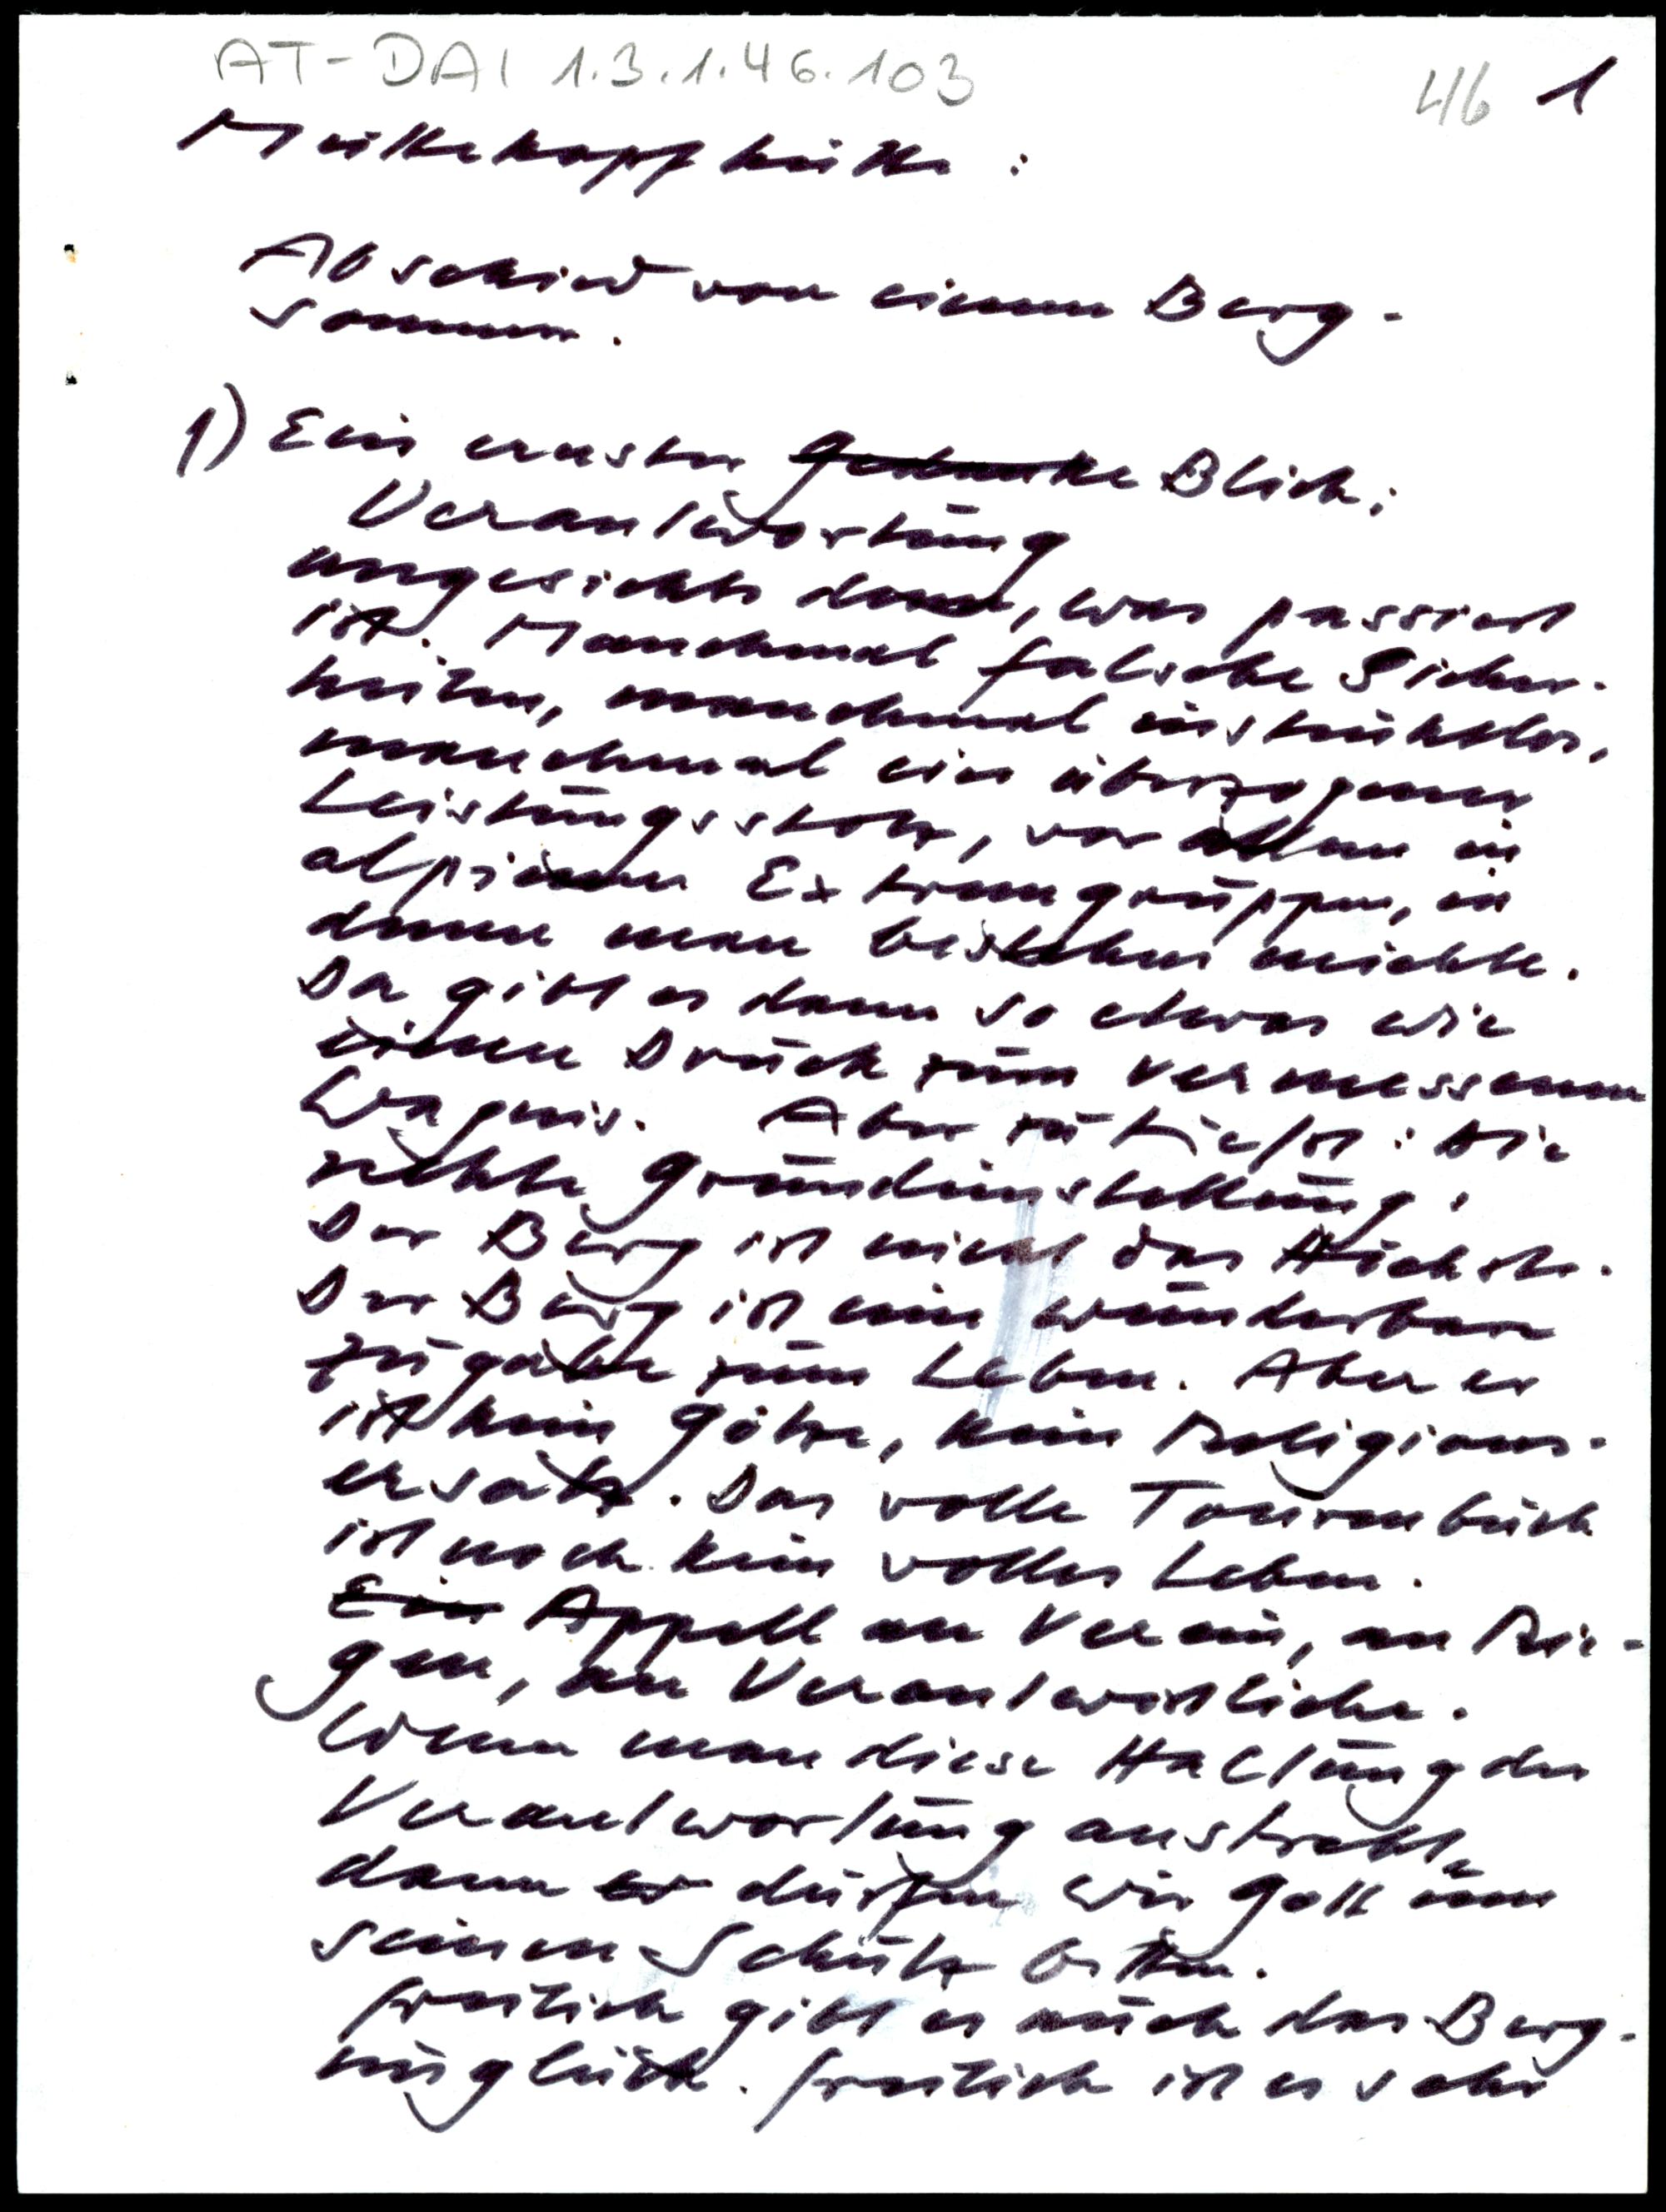 AT-DAI 1.3.1.46.103
46 1
Muttekopfhütte:
Abschied von einem Berg-
sommer.
1) Ein ernster Gedanke Blick:
Verantwortung
angesichts dem, was passiert
ist. Manchmal falsche Sicher-
heiten, manchmal instinktlos,
manchmal ein überzogener
Leistungsstolz, vor allem in
alpinen Extremgruppen, in
denen man bestehen möchte.
Da gibt es dann so etwas wie
einen Druck zum vermessenen
Wagnis. Aber zu tiefst: die
rechte Grundeinstellung:
Der Berg ist nicht das Höchste.
Der Berg ist eine wunderbare
Zugabe zum Leben. Aber er
ist kein Götze, kein Religions-
ersatz. Das volle Tourenbuch
ist noch kein volles Leben.
Ein Appell an Verein, an Rie-
gen, an Verantwortliche.
Wenn man diese Haltung der
Verantwortung ausstrahlt,
dann dürfen wir Gott um
seinen Schutz bitten.
Freilich gibt es auch das Berg-
unglück. Freilich ist es sehr